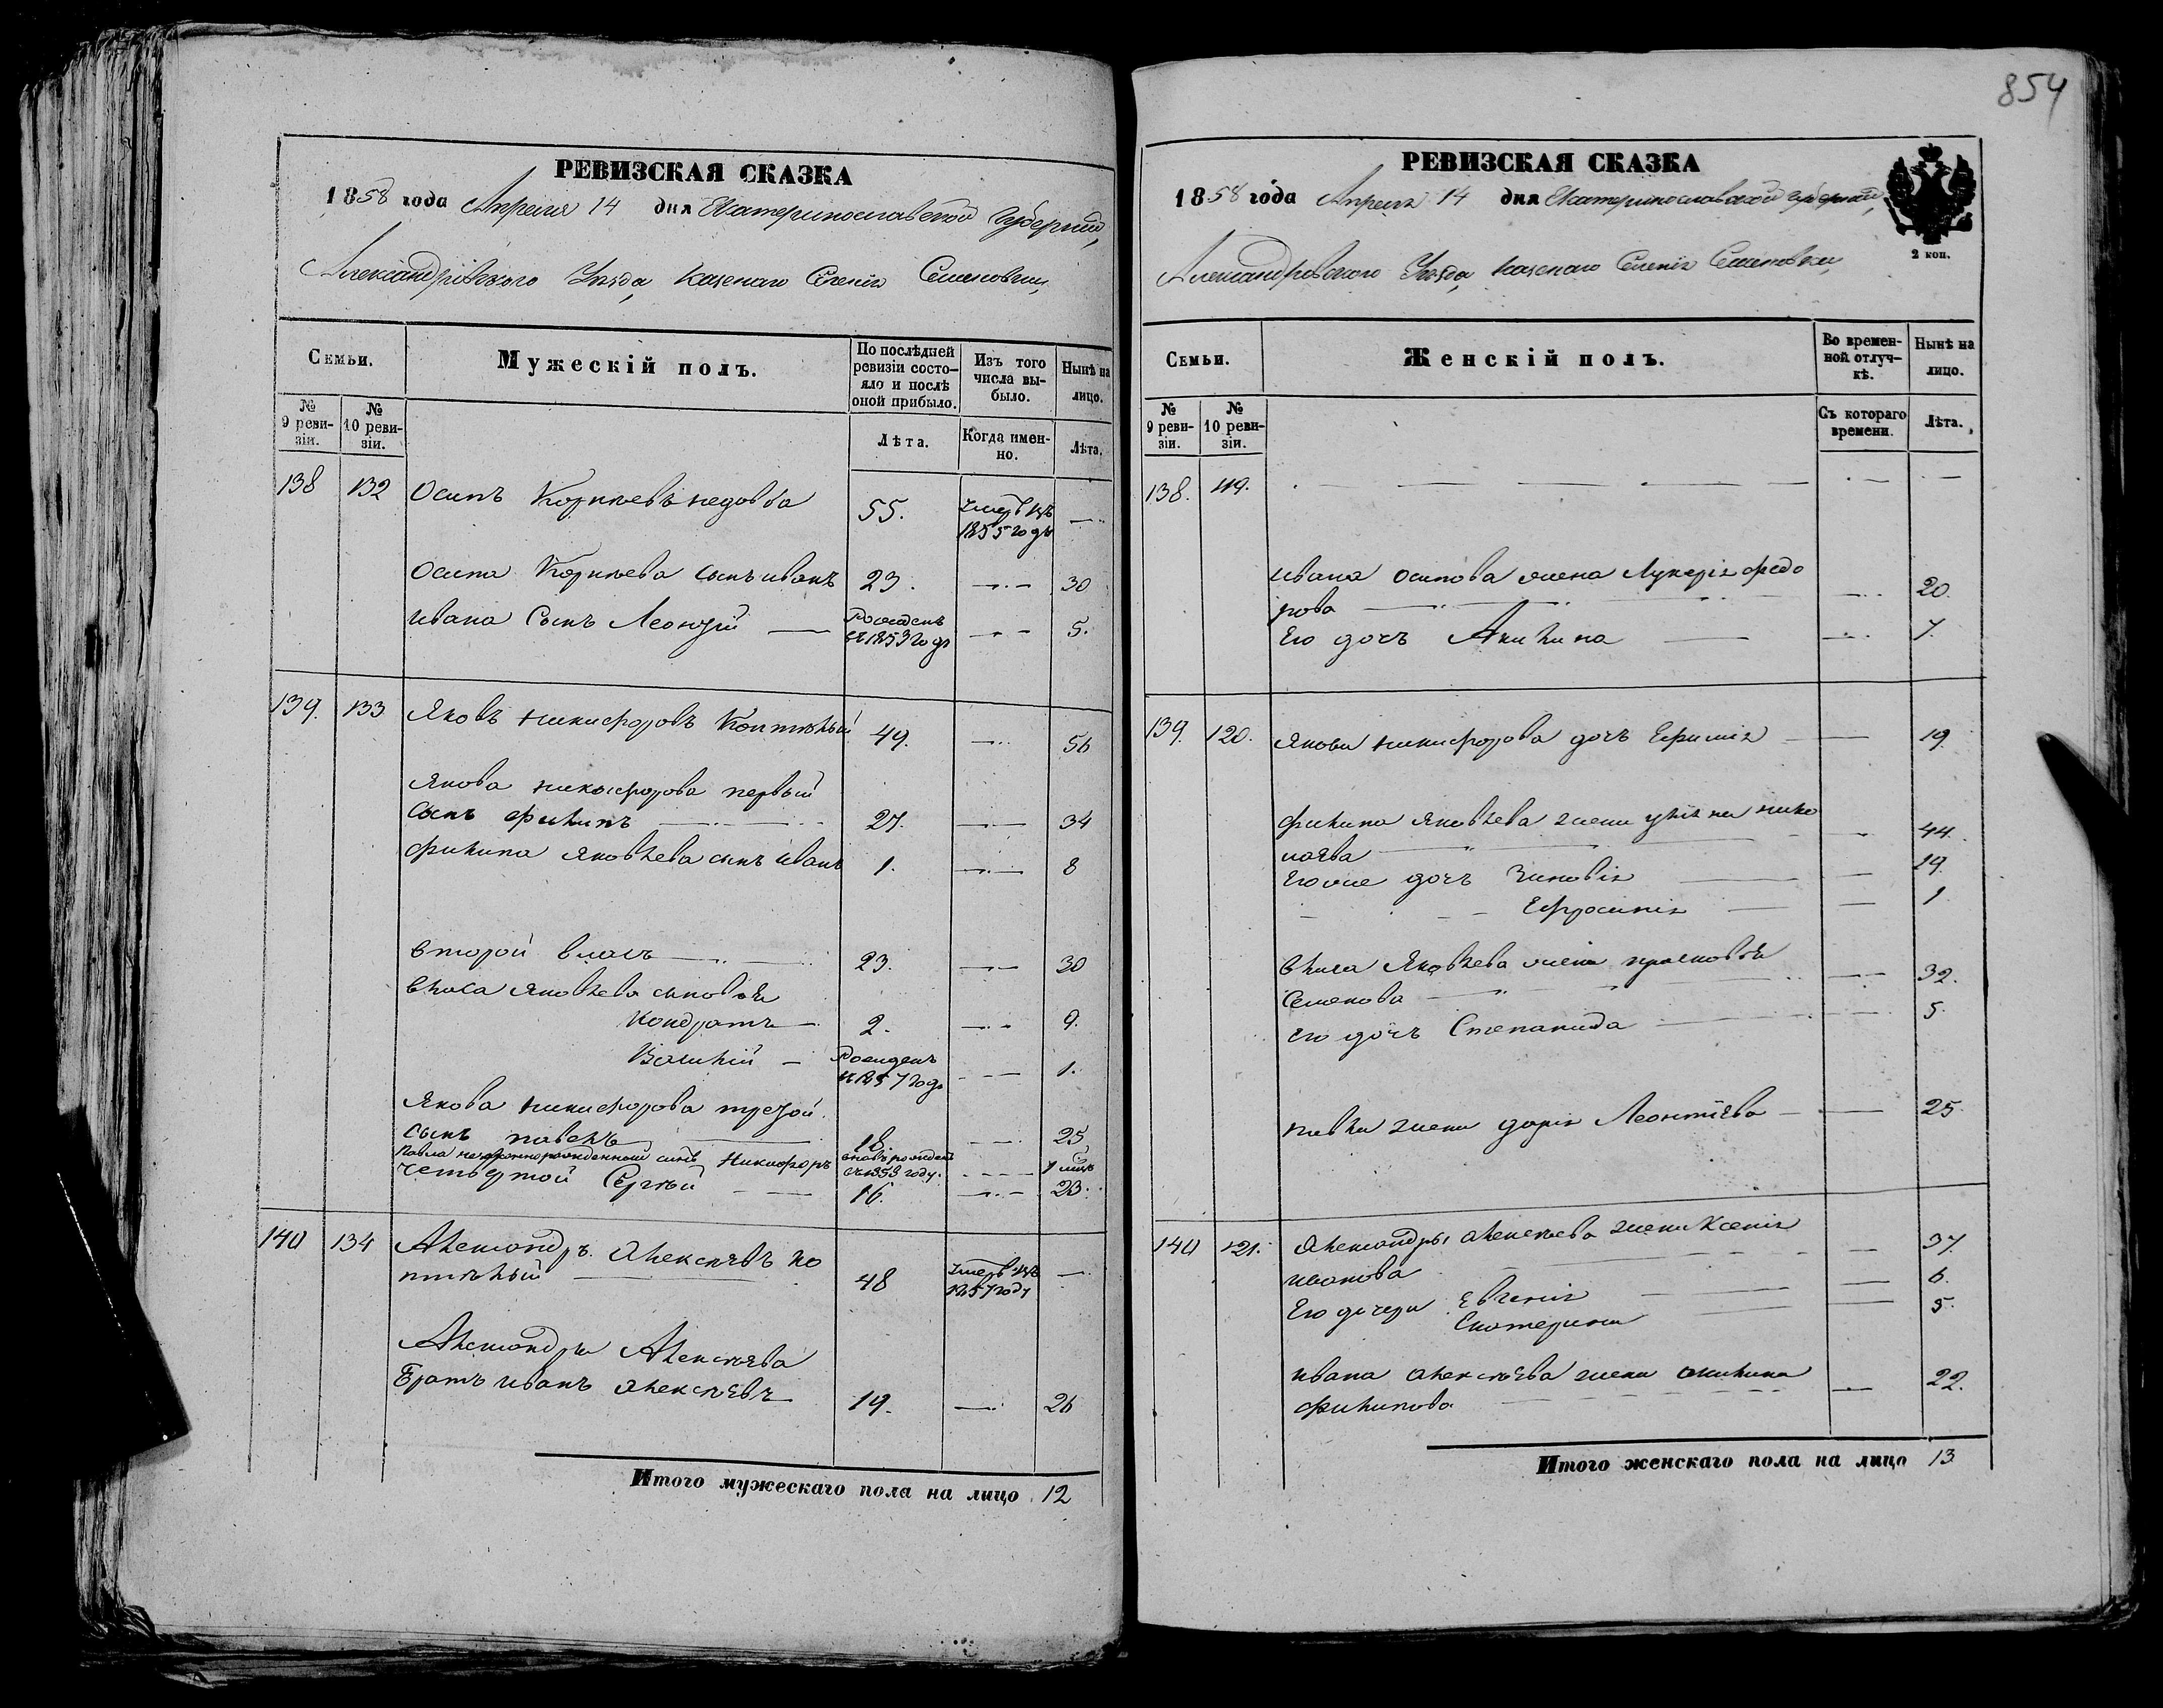 854
РЕВИЗСКАЯ СКАЗКА
1858 года Апреля 14 дня Екатеринославской Губернии,
Александровского Уезда, казенаго Селенія Семеновки,
Семьи.
Мужескій полъ.
По послѣдней ревизіи состояло и послѣ оной прибыло.
Изъ того числа выбыло.
Нынѣ на лицо.
№ 9 ревизіи.
№ 10 ревизіи.
Лѣта.
Когда именно.
Лѣта.
138 132 Осипъ Корнѣевъ 55. Умеръ въ 1855 годѣ —
Осипа Корнѣева сынъ иванъ 23. — 30
ивана Сынъ Леонтій — Рожденъ въ 1853 годѣ — 5.
139. 133 Яковъ никифоровъ 49. — 56
Якова никифорова первый
сынъ филипъ — 27. — 34
филипа Яковлева сынъ иванъ 1. — 8
второй власъ — 23. — 30
власа Яковлева сыновья
Кондратъ — 2. — 9.
Рожденъ въ 1857 годѣ — 1.
Якова никифорова третой
сынъ павелъ — 18. — 25
Павла сынъ Никифоръ
четвертой Сергѣй — 16. — 23.
140 134 Александръ Алексѣевъ Ко
птѣлый — 48 Умеръ въ 1857 году —
Александра Алексѣева
Братъ иванъ Алексѣевъ 19. — 26
Итого мужескаго пола на лицо 12
РЕВИЗСКАЯ СКАЗКА
1858 года Апреля 14 дня Екатеринославской губерніи,
Александровского Уезда, казенаго Селенія Семеновки,
2 коп.
Семьи.
Женскій полъ.
Во временной отлучкѣ.
Нынѣ на лицо.
№ 9 ревизіи.
№ 10 ревизіи.
Съ котораго времени.
Лѣта.
138. 119. — — —
ивана осипова жена Лукерія федо
рова — 20.
Его дочъ Акилина — 7.
139. 120. Якова никифорова дочъ Ефимія — 19
филипа Яковлева жена улияна нико
лаева — 44.
Его же дочъ Зиновія — 19.
Ефросинія — 1
власа Яковлева жена прасковья
Семенова — 32.
Его дочъ Степанида — 5.
павла жена дарія Леонтіева — 25.
140 121. Александра алексѣева жена Ксенія
иванова — 37.
Его дочери Евгенія — 6.
Екатерина — 5.
ивана алексѣева жена акилина
филипова — 22.
Итого женскаго пола на лицо 13